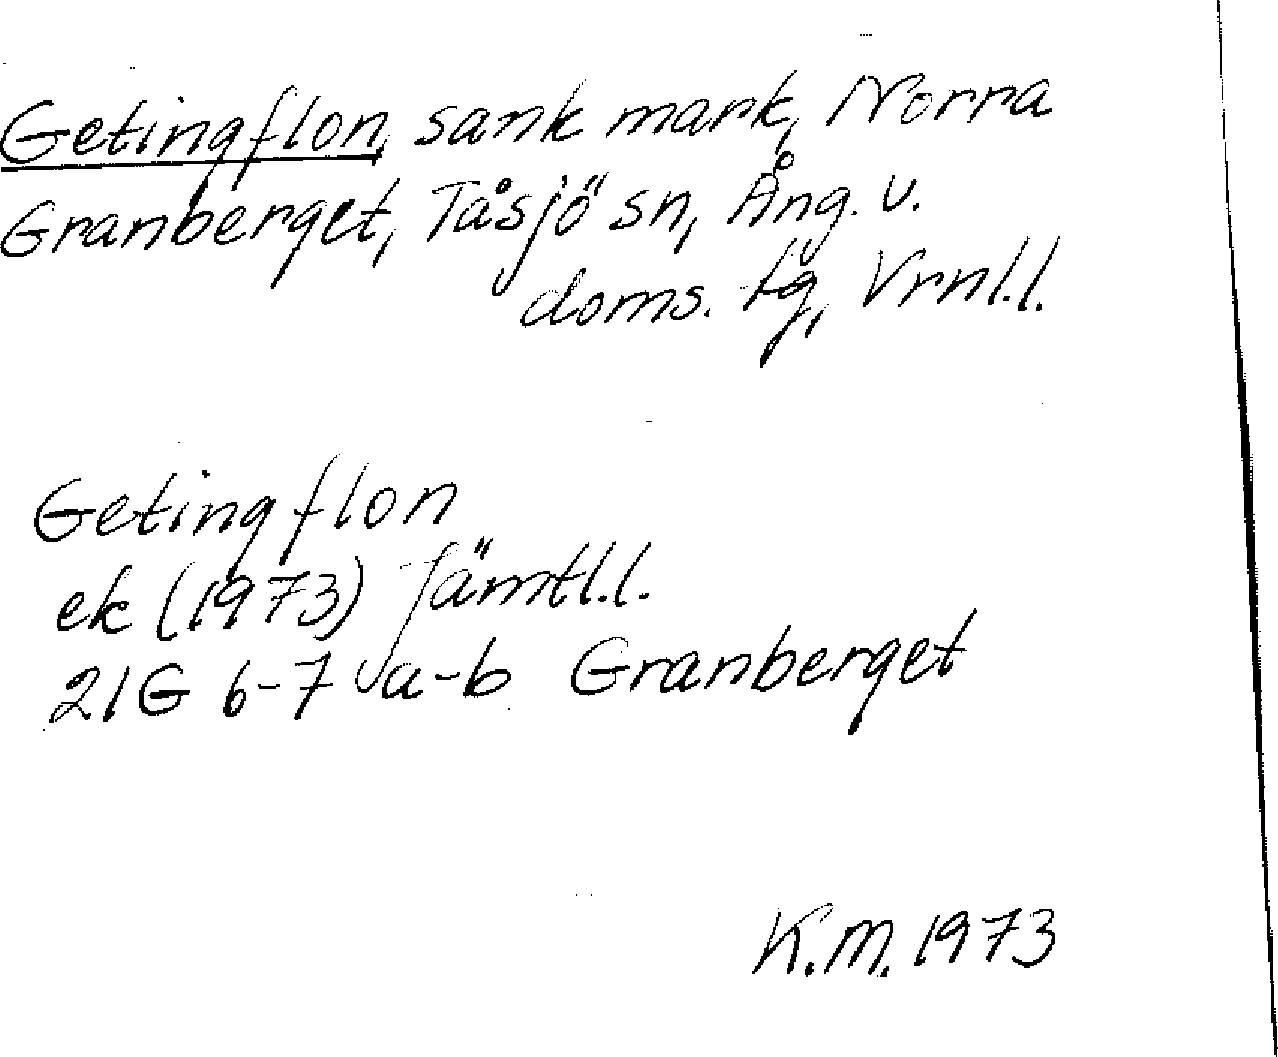 Getingflon, sank mark, Norra
Granberget, Tåsjö sn, Ång. v.
doms. tg, Vrnl.l.
Getingflon
ek (1973) Jämtl.l.
21G 6-7 a-b Granberget
K.M. 1973